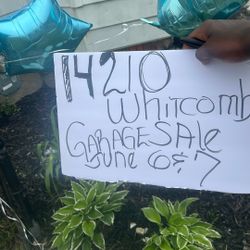 14210
Whitcomb
GARAGE SALE
June 6 & 7